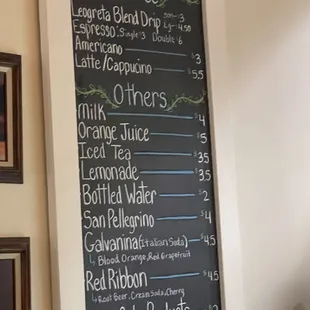 Leogreta Blend Drip Sm-3
Lg-4.50
Espresso: Single $3 Double $6
Americano $3
Latte/Cappucino $5.5
Others
Milk $4
Orange Juice $5
Iced Tea $3.5
Lemonade $3.5
Bottled Water $2
San Pellegrino $4
Galvanina (Italian Soda) $4.5
↳ Blood Orange, Red Grapefruit
Red Ribbon $4.5
↳ Root Beer, Cream Soda, Cherry
Products